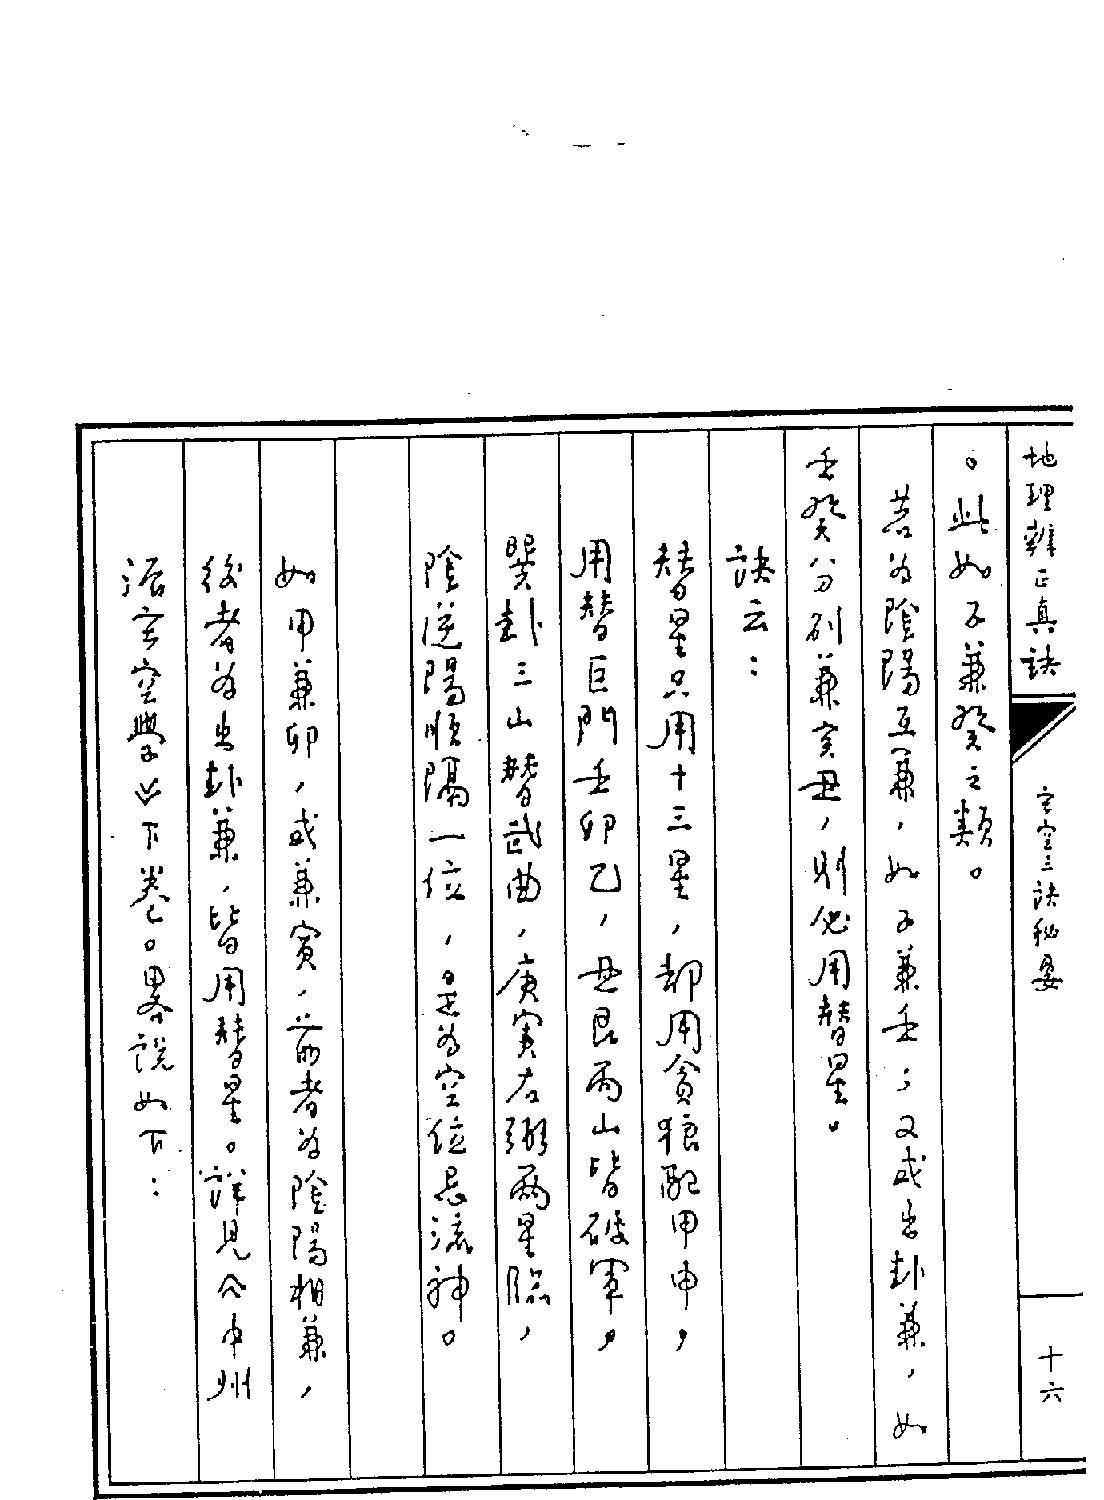 地理辨正真訣
玄空三訣秘要
十六
。此如子兼癸之類。
若为陰陽互兼，如子兼壬；又或出卦兼，如
壬癸分别兼亥丑，則必用替星。
訣云：
替星只用十三星，却用貪狼配甲申，
用替巨門壬卯乙，丑艮丙山皆破軍。
巽卦三山替武曲，庚寅右弼兩星臨，
陰逆陽順隔一位，是为空位忌流神。
如甲兼卯，或兼寅，前者为陰陽相兼，
後者为出卦兼，皆用替星。詳見《中州
派玄空學》下卷。畧說如下：